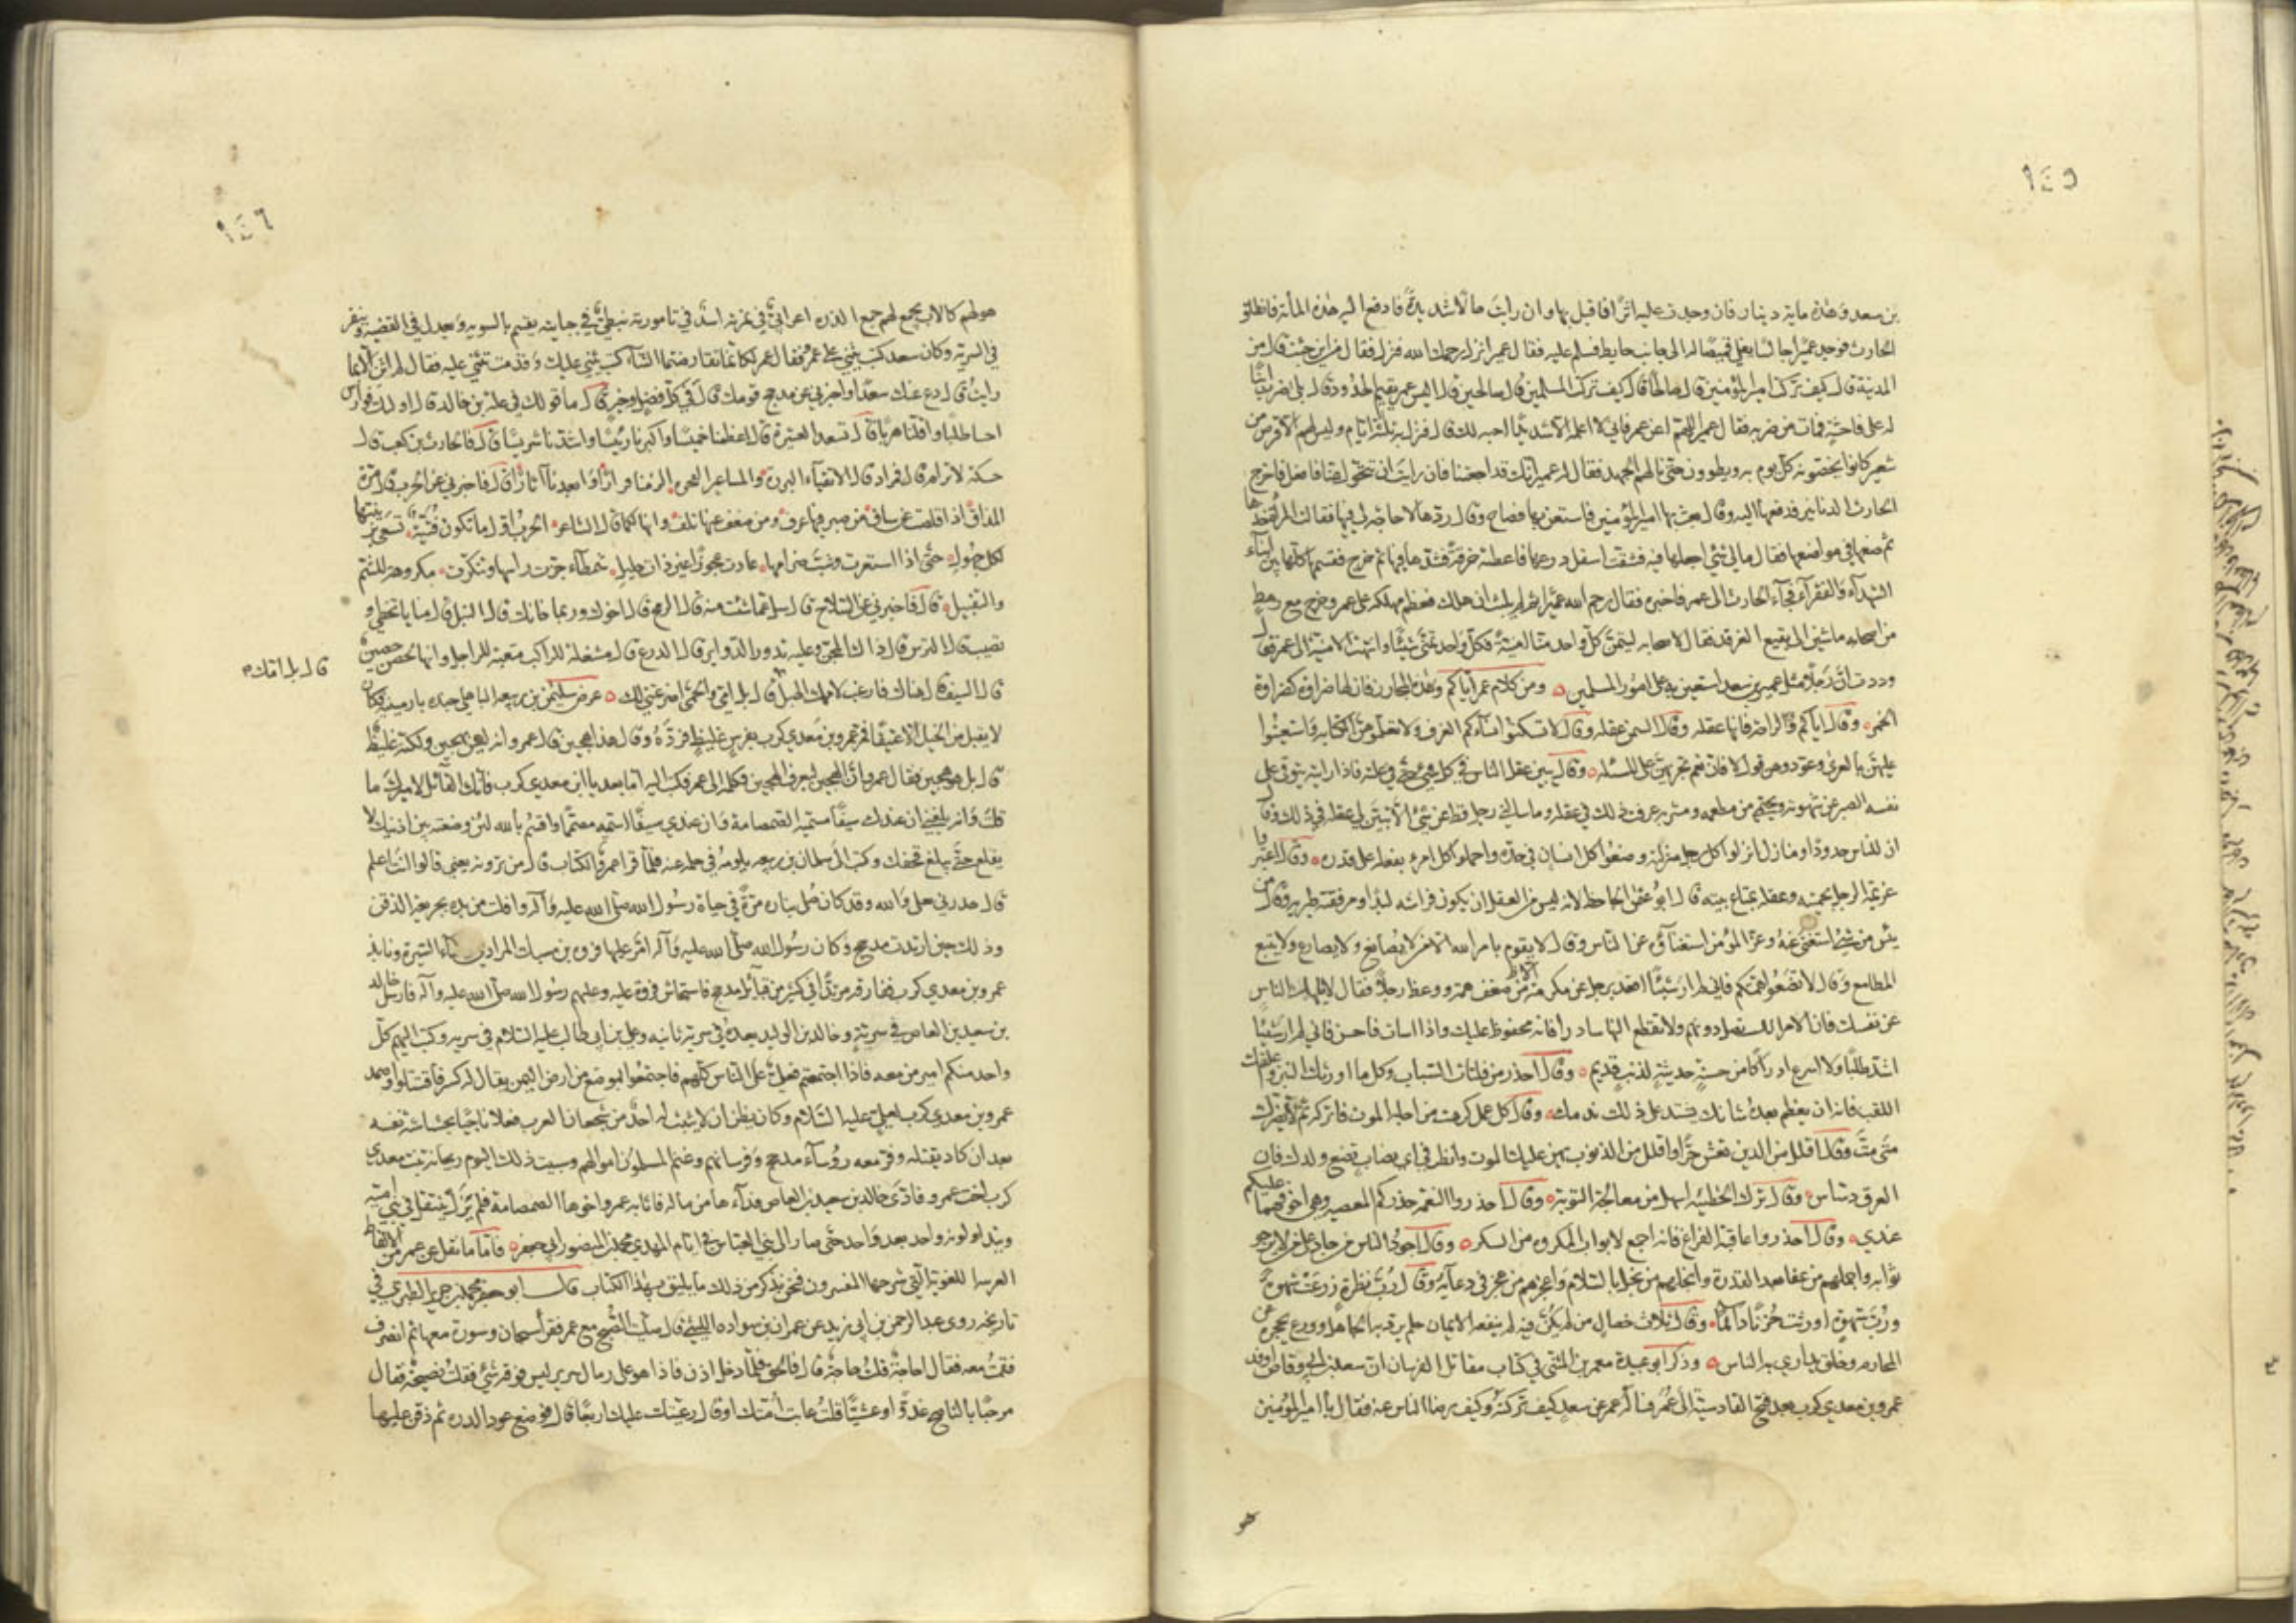 ١٤٥
بن سعد وهذه ماية دينار فان وجدت عليه اثرا فاقبل بها وان رايت حالا شديدة فادفع اليه هذه المأة فانطلق
الحارث فوجد عميرا جالسا يفلي قميصا له الى جانب حايط فسلم عليه فقال عمير انزل رحمك الله فنزل فقال من اين جئت قال من
المدينة قال كيف تركت امير المؤمنين قال صالحا قال كيف تركت المسلمين قال صالحين قال اليس عمر يقيم الحدود قال بلى ضرب ابنا
له على فاحشة فمات من ضربه فقال عمير اللهم اعن عمر فاني لا اعلمه الا شديدا حبه لك قال فنزل به ثلثة ايام وليس لهم الا قرص من
شعير كانوا يخصونه كل يوم به ويطوون حتى نالهم الجهد فقال له عمير انك قد اجعتنا فان رايت ان تتحول عنا فافعل فاخرج
الحارث الدنانير فدفعها اليه وقال بعث بها امير المؤمنين فاستعن بها فصاح وقال ردها لا حاجة لي فيها فقالت المرأة خذها
ثم ضعها في مواضعها فقال مالي شئ اجعلها فيه فشقت اسفل درعها فاعطته خرقة فشدها فيها ثم خرج فقسمها كلها بين ابناء
الشهداء والفقراء فجاء الحارث الى عمر فاخبره فقال رحم الله عميرا ثم لم يلبث ان هلك فعظم مهلكه على عمر وخرج مع رهط
من اصحابه ماشين الى بقيع الغرقد فقال لاصحابه ليتمن كل واحد منا امنيته فكل واحد تمنى شيئا وانتهت الامنية الى عمر فقال
وددت ان رجلا مثل عمير بن سعد استعين به على امور المسلمين ومن كلام عمر اياكم وهذه المجازر فان لها ضراوة كضراوة
الخمر وقال اياكم والراحة فانها عقلة وقال السمن عقلة وقال لا تسكنوا نساءكم الغرف ولا تعلموهن الكتابة واستعينوا
عليهن بالعرى وعودوهن قول لا فان نعم تجريهن على المسئلة وقال تبين عقل الناس في كل شئ حتى في علته فاذا رايته يتوقى على
نفسه الصبر عن شهوته ويحتمي من مطعمه ومشربه عرف ذلك في عقله وما سالني رجل قط عن شئ الا تبين لي عقله في ذلك وقال
ان للناس حدودا ومنازل انزلوا كل رجل منزلته وضعوا كل انسان في حده واحملوا كل امرء بفعله على قدره وقال اعتبروا
عزيمة الرجل بحميته وعقله بمتاع بيته قال ابو عثمن الجاحظ لانه ليس من العقل ان يكون فراشه لبدا ومرفقته طبرية وقال من
يئس من شئ استغنى عنه وعز المؤمن استغناؤه عن الناس وقال لا يقوم بامر الله الا من لا يصانع ولا يضارع ولا يتبع
المطامع وقال لا تضعفوا همتكم فاني لم ار شيئا اقعد برجل عن مكرمة من ضعف همته ووعظ رجلا فقال لا تلهك الناس
عن نفسك فان الامر اليك تصل دونهم ولا تقطع النهار سادرا فانه محفوظ عليك واذا اسات فاحسن فاني لم ار شيئا
اشد طلبا ولا اسرع ادراكا من حسنة حديثة لذنب قديم وقال احذر من فلتات الشباب وكل ما اورثك النبز وعلقك
اللقب فانه ان يعظم بعده شانك يشتد على ذلك ندمك وقال كل عمل كرهت من اجله الموت فاتركه ثم لا يضرك
متى مت وقال اقلل من الدين تعش حرا واقلل من الذنوب يهن عليك الموت وانظر في اي نصاب تضع ولدك فان
العرق دساس وقال ترك الخطيئة اسهل من معالجة التوبة وقال احذروا النعمة حذركم المعصية وهي اخوفهما عليكم
عندي وقال احذروا عاقبة الفراغ فانه اجمع لابواب المكروه من السكر وقال اجود الناس من جاد على من لا يرجو
ثوابه واحلمهم من عفا بعد القدرة وابخلهم من بخل بالسلام واعجزهم من عجز في دعآئه وقال رب نظرة زرعت شهوة
ورب شهوة اورثت حزنا دائما وقال ثلاث خصال من لم يكن فيه لم ينفعه الايمان حلم يرد به جهل الجاهل وورع يحجره عن
المحارم وخلق يداري به الناس وذكر ابو عبيدة معمر بن المثنى في كتاب مقاتل الفرسان ان سعد بن ابي وقاص اوفد
عمرو بن معدي كرب بعد فتح القادسية الى عمر فسأله عمر عن سعد كيف تركته وكيف رضا الناس عنه فقال يا امير المؤمنين
هو
١٤٦
هو لهم كالاب يجمع لهم جمع الذرة اعرابي في نمرته اسد في تامورته نبطي في جبايته يقسم بالسوية ويعدل في القضية وينفر
في السرية وكان سعد كتب يثني على عمرو فقال عمر لكانما تقارضتما الثناء كتب يثني عليك وقدمت تثني عليه فقال لم اثن الا بما
رايت قال دع عنك سعدا واخبرني عن مذحج قومك قال في كل فضل وخير قال ما قولك في علة بن خالد قال اولئك فوارس
احسابنا طلبا واقلنا هربا قال فسعد العشيرة قال اعظمنا خميسا واكبرنا رئيسا واشدنا شريسا قال فالحارث بن كعب قال
حسكة لا ترام قال فمراد قال الاتقياء البررة والمساعير الفجرة الزمنا قرارا وابعدنا آثارا قال فاخبرني عن الحرب قال مرة
المذاق اذا قلصت عن ساق من صبر فيها عرف ومن ضعف عنها تلف وانها كما قال الشاعر الحرب اول ما تكون فتية تسعى بزينتها
لكل جهول حتى اذا استعرت وشب ضرامها عادت عجوزا غير ذات حليل شمطآء جزت راسها وتنكرت مكروهة للشم
والتقبيل قال فاخبرني عن السلاح قال سل عما شئت منه قال الرمح قال اخوك وربما خانك قال النبل قال منايا تخطي و
تصيب قال الترس قال ذاك المجن وعليه تدور الدوائر قال الدرع قال مشغلة للراكب متعبة للراجل وانها لحصن حصين
قال السيف قال هناك قارعت لامك الهبل قال بل امك والحمى اضرعتني لك عرض سليمن بن ربيعة الباهلي جنده بارمينية فكان
قال بل امك ه
لا يقبل من الخيل الا عتيقا فمر عمرو بن معدي كرب بفرس غليظ فرده وقال هذا هجين قال عمرو انه ليس بهجين ولكنه غليظ
قال بل هو هجين فقال عمرو ان الهجين ليعرف الهجين فكتبها الى عمر فكتب اليه اما بعد يا ابن معدي كرب فانك القائل لاميرك ما
قلت وانه بلغني ان عندك سيفا تسميه الصمصامة وان عندي سيفا اسميه مصمما واقسم بالله لئن وضعته بين اذنيك لا
يقلع حتى يبلغ قحفك وكتب الى سلمان بن ربيعة يلومه في حلمه عنه فلما قرا عمرو الكتاب قال من ترونه يعني قالوا انت اعلم
قال هددني بعلي والله وقد كان صلي بناره مرة في حياة رسول الله صلى الله عليه وآله وافلت من يده بجريعة الذقن
وذلك حين ارتدت مذحج وكان رسول الله صلى الله عليه وآله امر عليها فروة بن مسيك المرادي فاسآء السيرة ونابذ
عمرو بن معدي كرب ففارقه مرتدا في كثير من قبائل مذحج فاستجاش فروة عليه وعليهم رسول الله صلى الله عليه وآله فارسل خالد
بن سعيد بن العاص في سرية وخالد بن الوليد بعده في سرية ثانية وعلي بن ابي طالب عليه السلام في سرية وكتب اليهم كل
واحد منكم امير من معه فاذا اجتمعتم فعلي على الناس كلهم فاجتمعوا بموضع من ارض اليمن يقال له كسر فاقتتلوا وصمد
عمرو بن معدي كرب لعلي عليه السلام وكان يظن ان لا يثبت له احد من شجعان العرب فعلاه ناجيا بحشاشة نفسه
بعد ان كاد يقتله وفر معه رؤسآء مذحج وفرسانهم وغنم المسلمون اموالهم وسبيت ذلك اليوم ريحانة بنت معدي
كرب اخت عمرو فادى خالد بن سعيد بن العاص فدآءها من ماله فاثابه عمرو اخوها الصمصامة فلم يزل ينتقل في بني امية
ويتداولونه واحد بعد واحد حتى صار الى بني العباس في ايام المهدي محمد بن المنصور ابي جعفر فاما ما نقل عن عمر من الالفاظ
الغريبة اللغوية التي شرحها المفسرون فنحن نذكر من ذلك ما يليق بهذا الكتاب قال ابو جعفر محمد بن جرير الطبري في
تاريخه روى عبد الرحمن بن ابي زيد عن عمران بن سوادة الليثي قال صليت الصبح مع عمر فقرأ سبحان وسورة معها ثم انصرف
فقمت معه فقال احاجة قلت حاجة قال فالحق فلما دخل اذن فاذا هو على رمال سرير ليس فوقه شئ فقلت نصيحة فقال
مرحبا بالناصح غدوا وعشيا قلت عابت امتك او قال رعيتك عليك اربعا قال فوضع عود الدرة ثم ذقن عليها